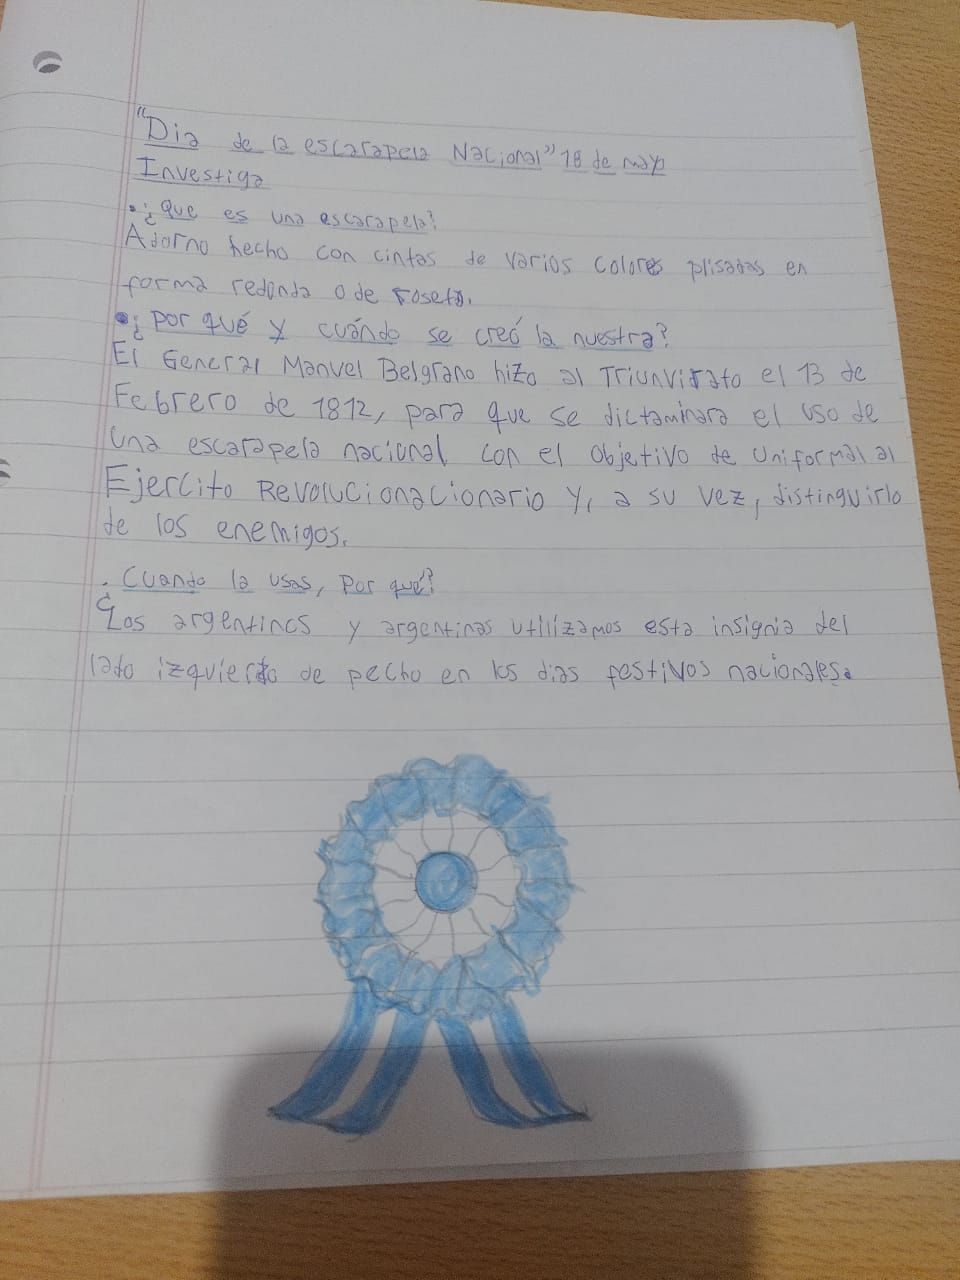 "Dia de la escarapela Nacional" 18 de mayo
Investiga
• ¿Que es una escarapela?
Adorno hecho con cintas de varios colores plisadas en
forma redonda o de roseta.
• ¿por qué y cuándo se creó la nuestra?
El General Manuel Belgrano hizo al Triunvirato el 13 de
Febrero de 1812, para que se dictaminara el uso de
una escarapela nacional con el objetivo de uniformar al
Ejercito Revolucionacionario y, a su vez, distinguirlo
de los enemigos.
. ¿Cuando la usas, por qué?
Los argentinos y argentinas utilizamos esta insignia del
lado izquierdo de pecho en los dias festivos nacionales.